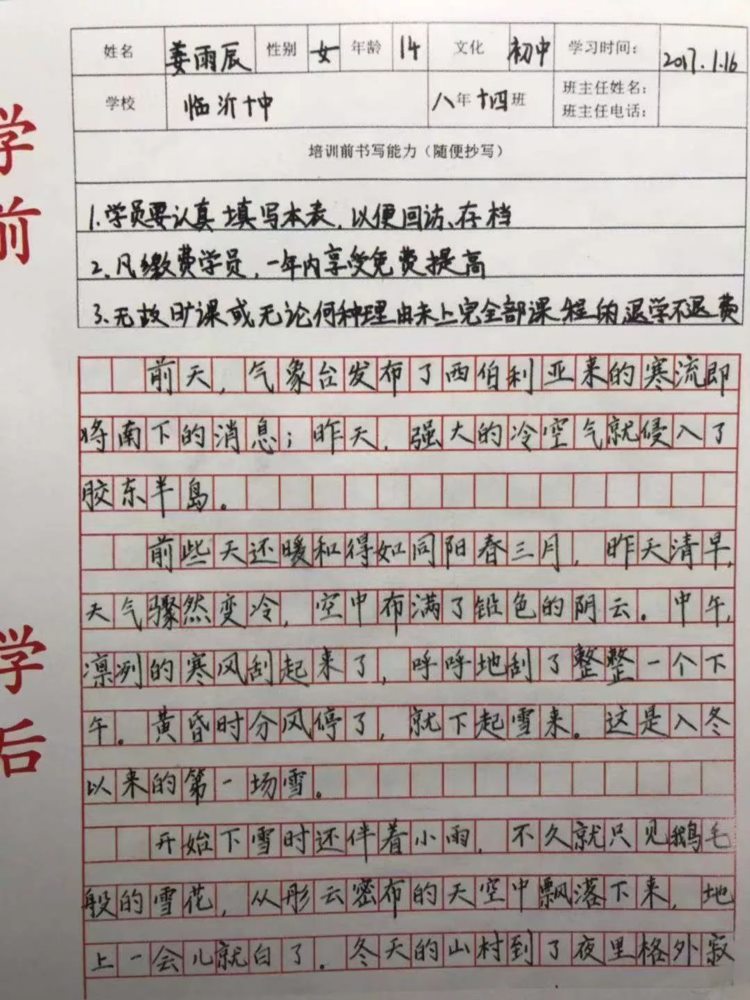 姓名 姜雨辰 性别 女 年龄 14 文化 初中 学习时间: 2017.1.16
学校 临沂十中 八年十四班 班主任姓名:
班主任电话:
培训前书写能力（随便抄写）
学前
1.学员要认真填写本表，以便回访、存档
2.凡缴费学员，一年内享受免费提高
3.无故旷课或无论何种理由未上完全部课程的退学不退费
学后
前天，气象台发布了西伯利亚来的寒流即
将南下的消息；昨天，强大的冷空气就侵入了
胶东半岛。
前些天还暖和得如同阳春三月，昨天清早，
天气骤然变冷，空中布满了铅色的阴云。中午，
凛冽的寒风刮起来了，呼呼地刮了整整一个下
午。黄昏时分风停了，就下起雪来。这是入冬
以来的第一场雪。
开始下雪时还伴着小雨，不久就只见鹅毛
般的雪花，从彤云密布的天空中飘落下来，地
上一会儿就白了。冬天的山村到了夜里格外寂